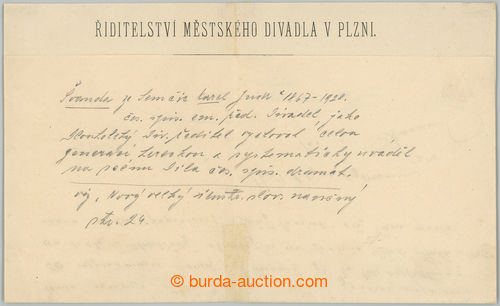 ŘIDITELSTVÍ MĚSTSKÉHO DIVADLA V PLZNI.
Švanda ze Semčic Karel * 1867-1928.
čes. spis. em. řed. divadel, jako
dlouholetý div. ředitel vychoval celou
generaci hereckou a systematicky uváděl
na scénu díla čes. spis. dramat.
viz, Nový velký ilustr. slov. naučný
str. 24.
© burda-auction.com